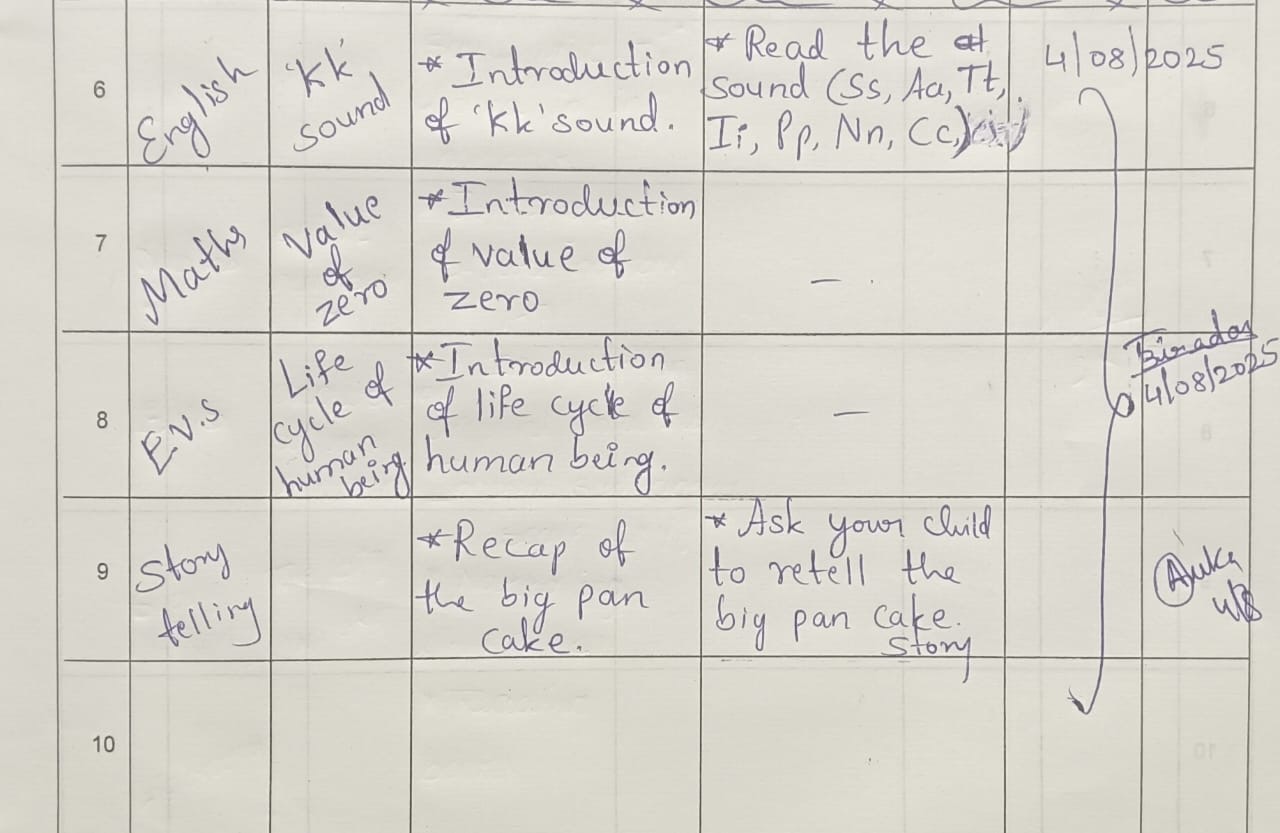 6
English
'Kk'
sound
* Introduction
of 'Kk' sound.
* Read the
sound (Ss, Aa, Tt,
Ii, Pp, Nn, Cc,)
4/08/2025
7
Maths
Value
of
zero
* Introduction
of value of
zero
—
8
E.V.S
Life
cycle of
human
being.
* Introduction
of life cycle of
human being.
—
4/08/2025
9
Story
telling
* Recap of
the big pan
cake.
* Ask your child
to retell the
big pan cake.
story
10